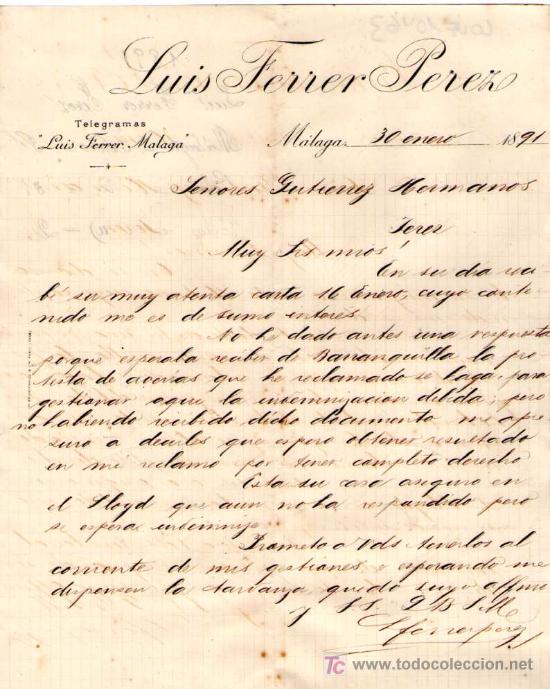 Luis Ferrer Perez
Telegramas
"Luis Ferrer. Malaga"
Málaga, 30 enero 1891
Señores Gutierrez Hermanos
Jerez
Muy Srs mios!
En su dia reci
bí su muy atenta carta 16 Enero, cuyo conte
nido me es de sumo interes.
No he dado antes una respuesta
porque esperaba recibir de Barranquilla la pro
testa de averias que he reclamado se haga, para
gestionar aqui la indemnizacion debida; pero
no habiendo recibido dicho documento me apre
suro a decirles que espero obtener resultado
en mi reclamo por tener completo derecho
Esta su casa aseguro en
el Lloyd que aun no ha respondido pero
se espera indemnize
Prometo a Vds tenerlos al
corriente de mis gestiones, y esperando me
dispensen la tardanza quedo suyo affmo
y S.S. Q B S M
LFerrerperez
TC todocoleccion
www.todocoleccion.net